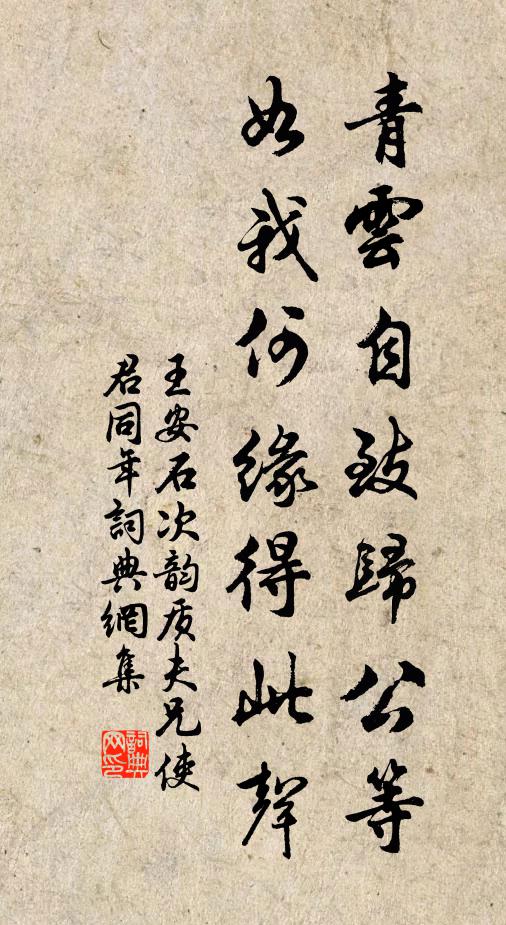 青雲自致歸公等
如我何緣得此聲
王安石次韵质夫兄使
君同年詞典網集
詞典
网印